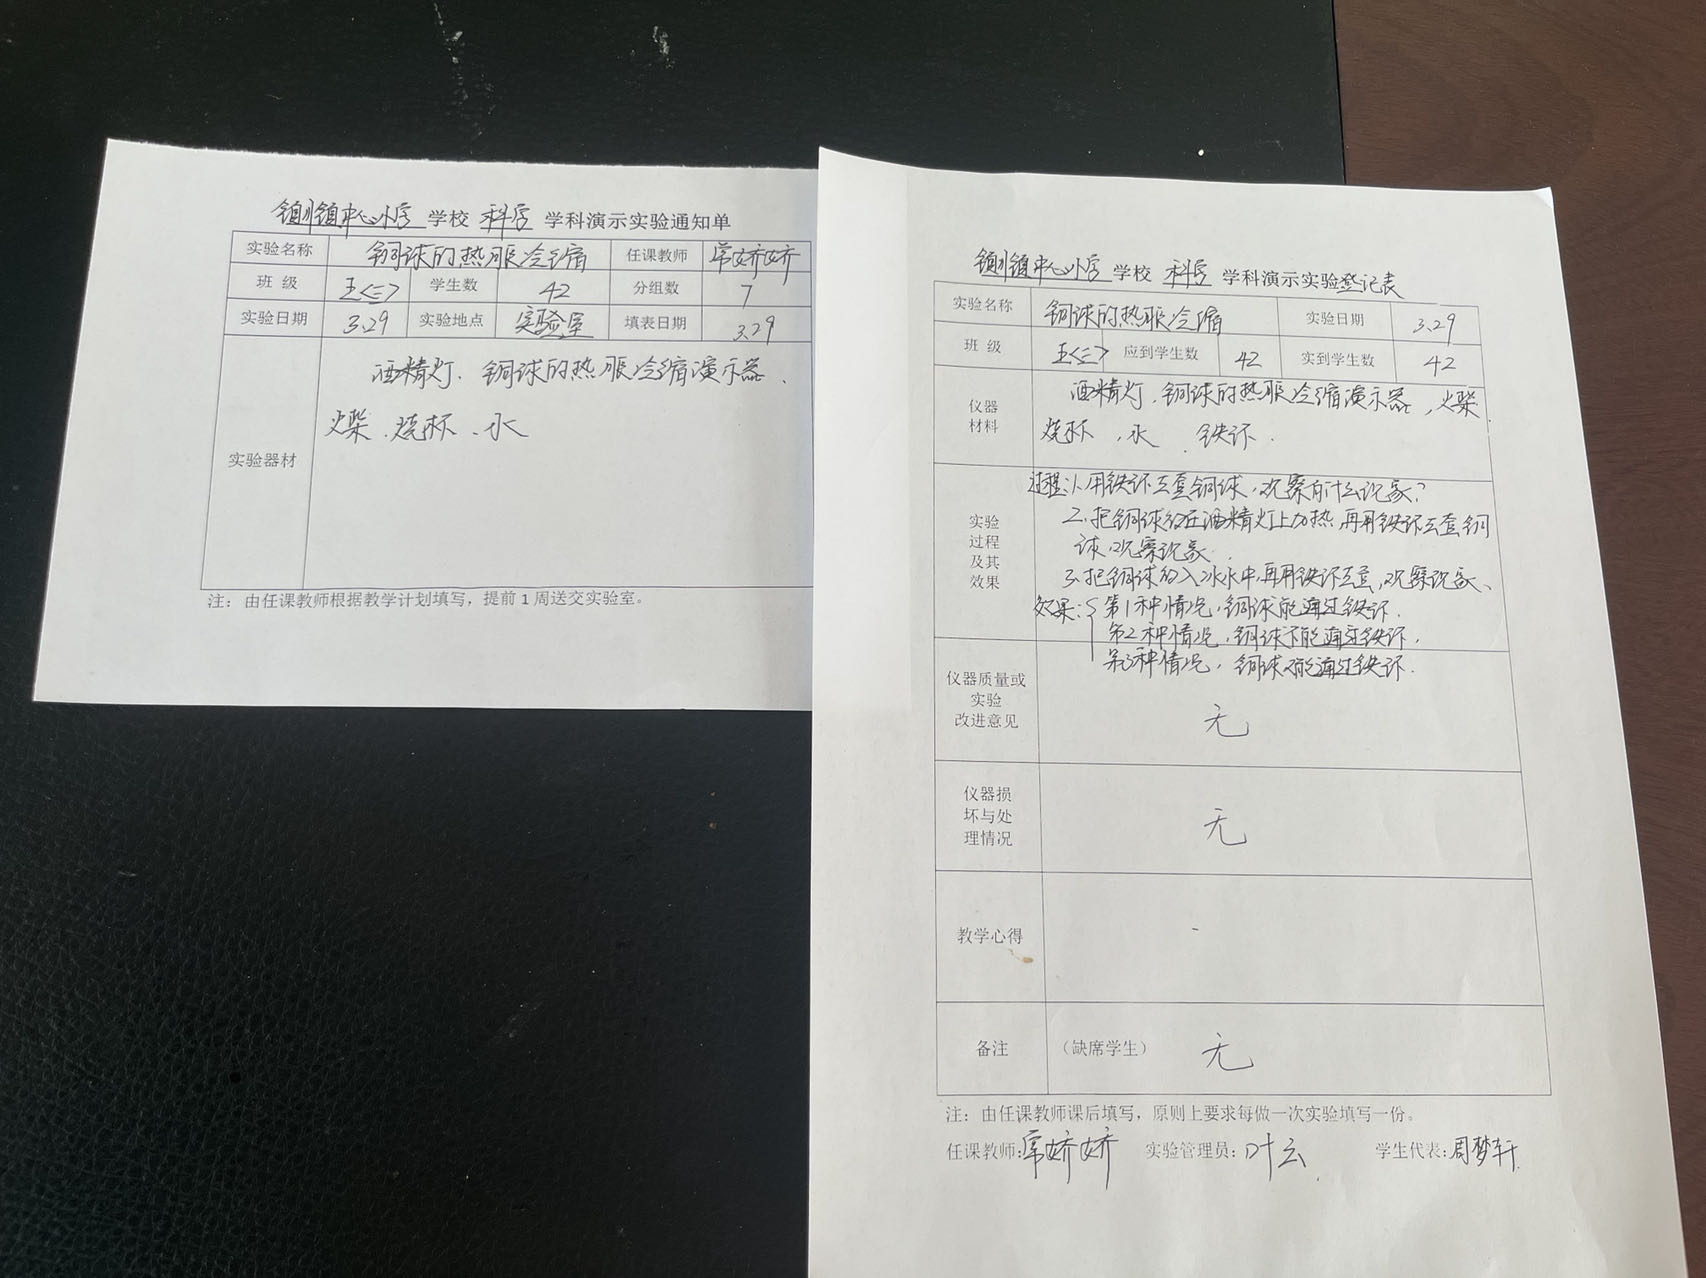 镇中心小学 学校 科学 学科演示实验通知单
实验名称 铜球的热胀冷缩 任课教师 常娇娇
班 级 五<三> 学生数 42 分组数 7
实验日期 3.29 实验地点 实验室 填表日期 3.29
实验器材
酒精灯、铜球的热胀冷缩演示器、
火柴、烧杯、水
注：由任课教师根据教学计划填写，提前1周送交实验室。
镇中心小学 学校 科学 学科演示实验登记表
实验名称 铜球的热胀冷缩 实验日期 3.29
班 级 五<三> 应到学生数 42 实到学生数 42
仪器
材料
酒精灯、铜球的热胀冷缩演示器、火柴、
烧杯、水 铁环.
实验
过程
及其
效果
过程:1、用铁环去套铜球,观察有什么现象?
2、把铜球放在酒精灯上加热,再用铁环去套铜
球,观察现象.
3、把铜球放入冰水中,再用铁环去套,观察现象、
效果: 第1种情况,铜球能通过铁环.
第2种情况,铜球不能通过铁环,
第3种情况,铜球能通过铁环.
仪器质量或
实验
改进意见
无
仪器损
坏与处
理情况
无
教学心得
备注 （缺席学生） 无
注：由任课教师课后填写，原则上要求每做一次实验填写一份。
任课教师:常娇娇 实验管理员:叶云 学生代表:周梦轩